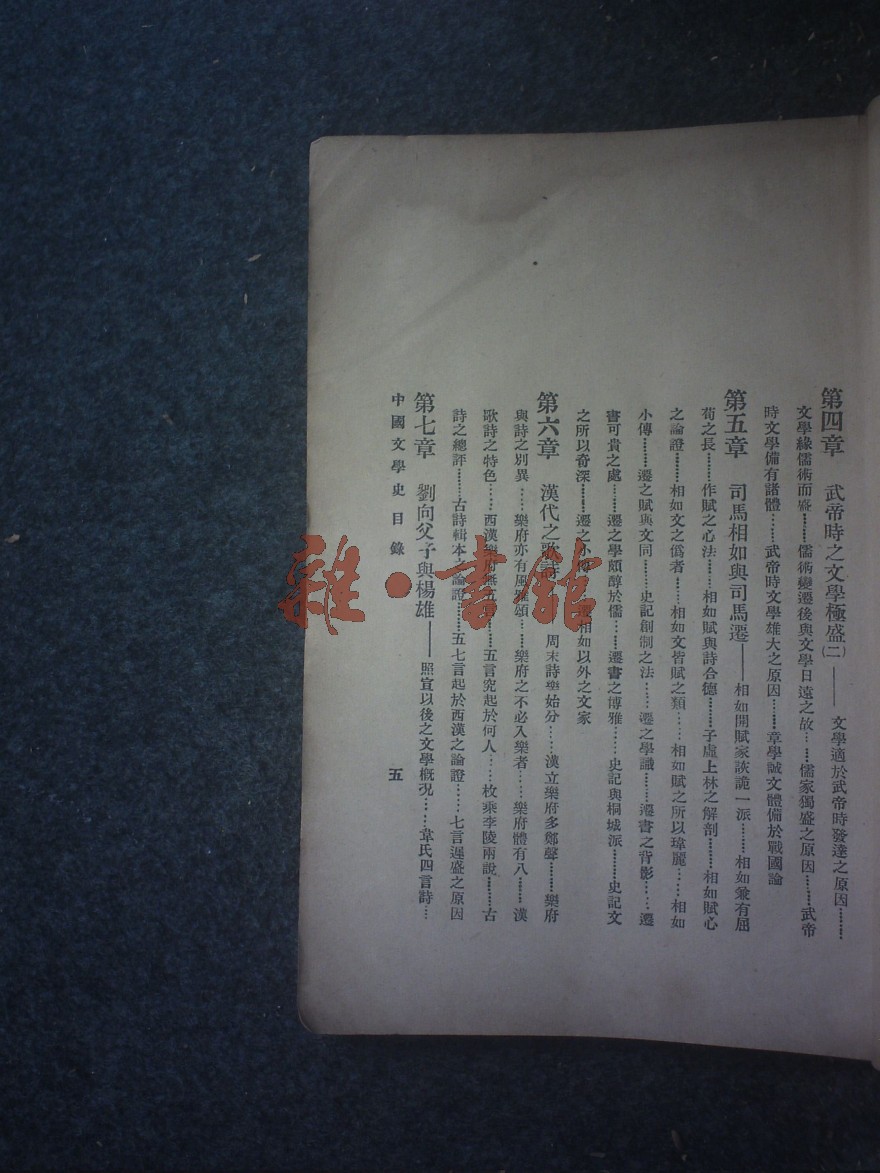 第四章　武帝時之文學極盛(二)——文學適於武帝時發達之原因……
文學緣儒術而盛……儒術變遷後與文學日遠之故……儒家獨盛之原因……武帝
時文學備有諸體……武帝時文學雄大之原因……章學誠文體備於戰國論
第五章　司馬相如與司馬遷——相如開賦家詼詭一派……相如兼有屈
荀之長……作賦之心法……相如賦與詩合德……子虛上林之解剖……相如賦心
之論證……相如文之僞者……相如文皆賦之類……相如賦之所以瑋麗……相如
小傳……遷之賦與文同……史記創制之法……遷之學識……遷書之背影……遷
書可貴之處……遷之學頗醇於儒……遷書之博雅……史記與桐城派……史記文
之所以奇深……遷之小傳……遷相如以外之文家
第六章　漢代之歌詩——周末詩樂始分……漢立樂府多鄭聲……樂府
與詩之別異……樂府亦有風雅頌……樂府之不必入樂者……樂府體有八……漢
歌詩之特色……西漢樂府無五言……五言究起於何人……枚乘李陵兩說……古
詩之總評……古詩輯本之論證……五七言起於西漢之論證……七言遲盛之原因
第七章　劉向父子與楊雄——照宣以後之文學概況……韋氏四言詩…
中國文學史目錄　五
雜·書館